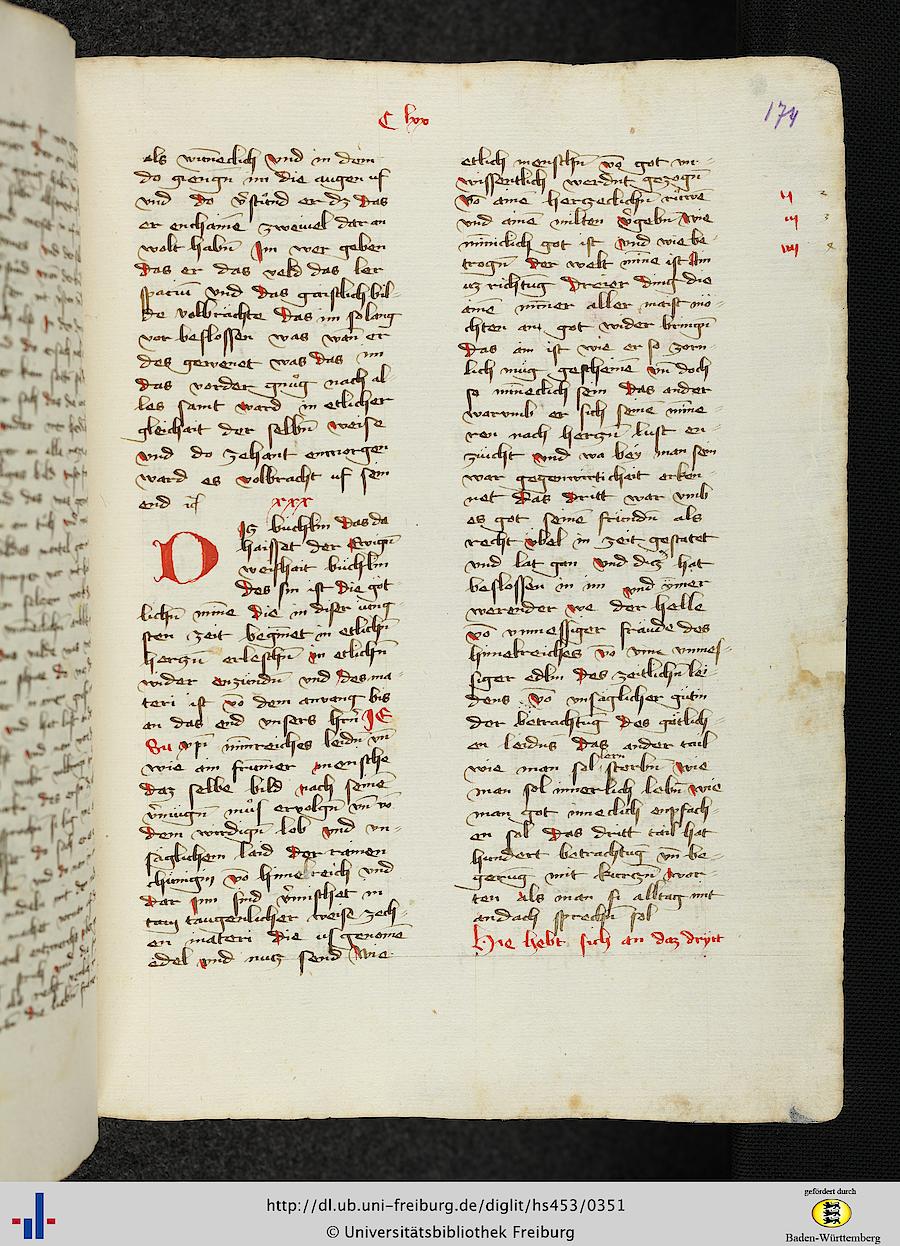 C lxx
174
als winneclich vnd in dem
do giengn im die augen uf
vnd do v̄stůnd er dz das
er enchaine zwiuel dar an
wolt habn̄ Im wer geben
das er das veld das ler
spaciū vnd das geistlich bil-
de volbrächte das im so lang
vor beslossen was wan er
des gewenet was das im
das vorder gnůg nach al-
les samt ward in etlicher
gleichait der selbn̄ weise
vnd do zehant enmorgen
ward es volbracht uf sein
end
xxx
Diz büchlin das da
haisset der ewign̄
weishait büchlin
des sin ist die göt-
lichn̄ mine die in diser iung
sten zeit beginet in etlichn̄
herczn̄ erleschn̄ in etlichn̄
wider enzündn̄ vnd des ma-
teri ist vō dem anvang bis
an das end vnsers hrn̄ JE
Su xpī minreiches leidn̄ vn̄
wie ain frumer mensche
daz selbe bild nach seinē
v̄mügn̄ můs ervolgn̄ vn̄ vō
dem wirdign̄ lob vnd vn-
säglichem laid der rainen
chünigin vō himelreich vnd
dar inn sind v̄mischet in
taugenlicher weise zech-
en materi die us genomē
edel vnd nucz send wie
etlich menschn̄ vō got vn-
wissentlich werdnt gezogn̄
vō aine herczeclichn̄ rüwe
vnd aine milten v̄gebn̄ wie
miniclich got ist vnd wie be-
trogn̄ der welt mine ist Ain
us richtūg dreier ding die
aine miner aller maist mö-
chten an got wider bringn̄
das ain ist wie er so zorn-
lich mug gescheinē vn̄ doch
so mineclich sein das ander
warumb er sich seinē mine-
ren nach herczn̄ lust en-
zücht vnd wa bey man sein
war gegenwirtichait erken-
net das dritt war vmb
es got seinē friundn̄ als
recht übel in zeit gestatet
vnd lat gan vnd dicz hat
beslossen in im vnd ymer
werender we der helle
vō vnmessiger fräude des
himelreiches vō vnmes-
siger edlin des zeitlichn̄ lei-
dens vō vnsäglicher gütin
der betrachtūg des götlich-
en leidens das ander tail
wie man sol lern sterbn̄ wie
man sol innerlich lebn̄ wie
man got ineclich enpfach-
en sol das dritt tail hat
hundert betrachtūg vn̄ be-
gerūg mit kurczn̄ wor-
ten als man si alltag mit
andach sprechn̄ sol
Hie hebt sich an daz drytt
ij
iij
iiij
http://dl.ub.uni-freiburg.de/diglit/hs453/0351
© Universitätsbibliothek Freiburg
gefördert durch
Baden-Württemberg